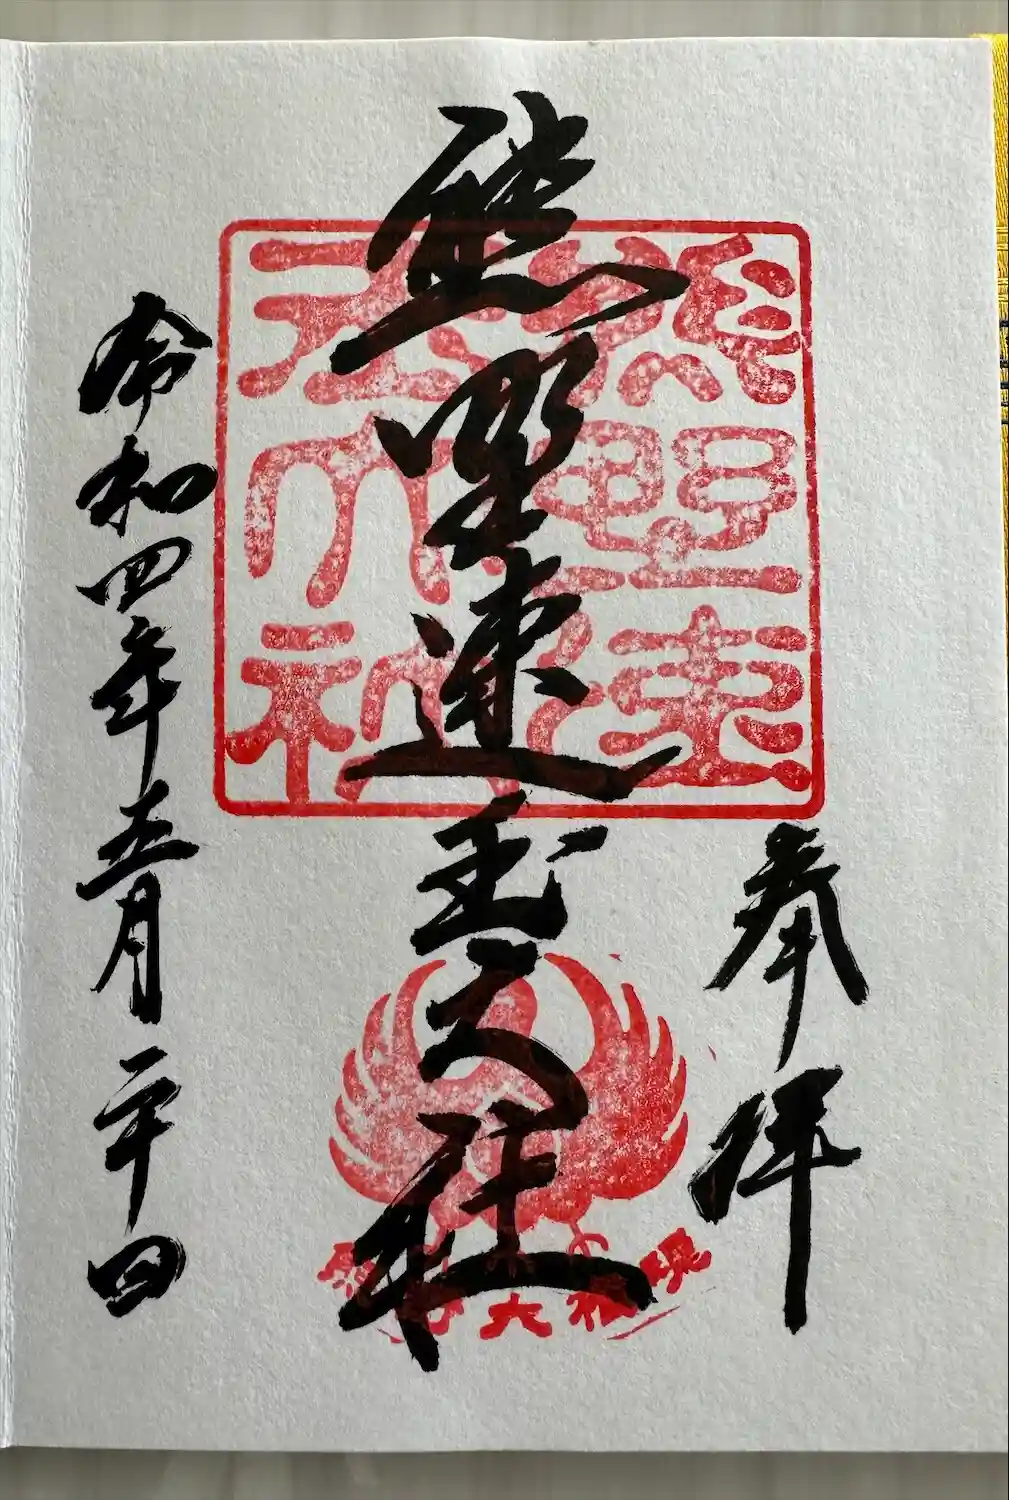 奉拝
熊野速玉大社
令和四年五月二十日
熊野速
玉大社
熊野大権現